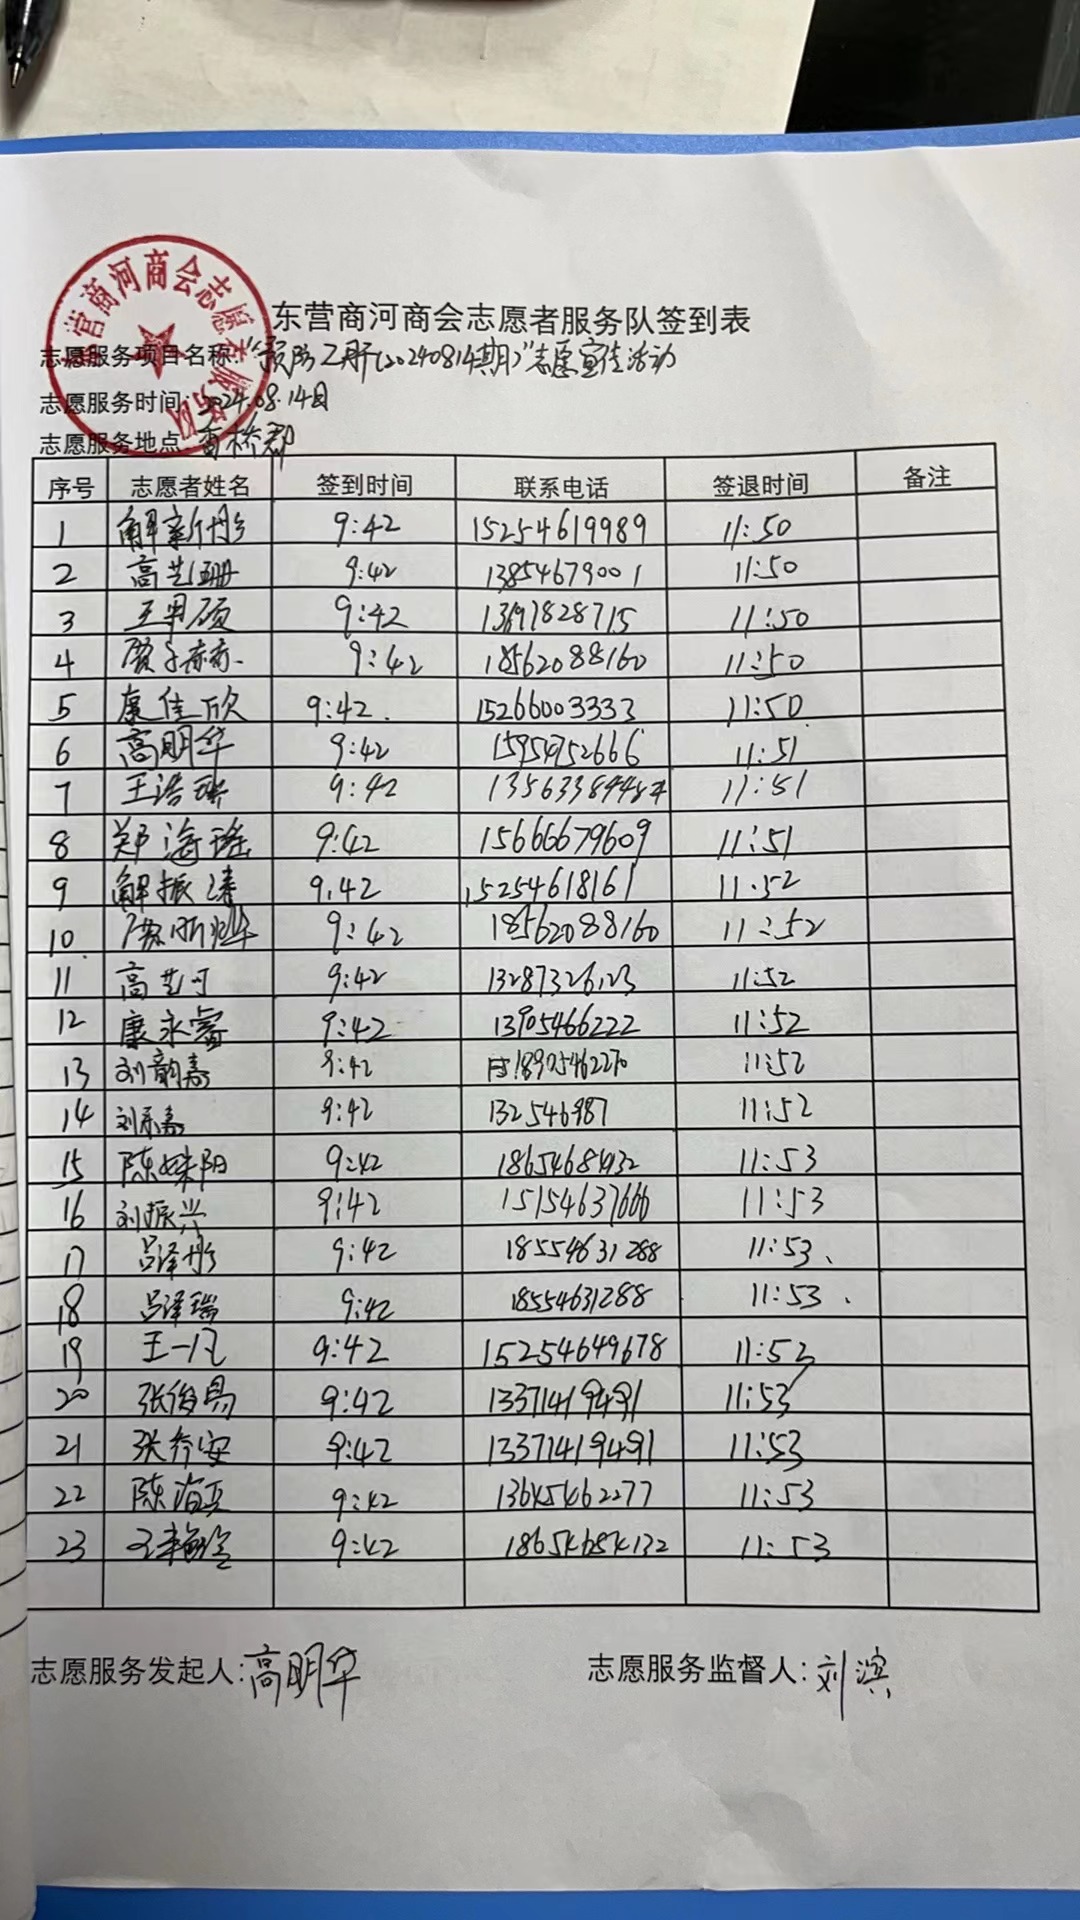 东营商河商会志愿者服务队
东营商河商会志愿者服务队签到表
志愿服务项目名称:“预防乙肝(20240814期)”志愿宣传活动
志愿服务时间: 2024.08.14日
志愿服务地点: 香桥郡
序号 志愿者姓名 签到时间 联系电话 签退时间 备注
1 解新彤 9:42 15254619989 11:50
2 高艺珊 9:42 13854679001 11:50
3 王男硕 9:42 11:50
4 9:42 18562088160 11:50
5 康佳欣 9:42. 15266003333 11:50
6 高明华 9:42 15954752666 11:51
7 王浩琳 9:42 11:51
8 郑海瑶 9:42 15666679609 11:51
9 解振涛 9.42 15254618161 11.52
10. 9:42 18562088160 11:52
11 高艺可 9:42 13287326123 11:52
12 康永睿 9:42 13905466222 11:52
13 刘韵嘉 9:42 18905462270 11:52
14 刘乐嘉 9:42 132546987 11:52
15 陈姝阳 9:42 11:53
16 刘振兴 9:42 15154637666 11:53
17 吕泽彤 9:42 18554631288 11:53、
18 吕泽瑞 9:42 18554631288 11:53.
19 王一凡 9:42 15254649678 11:53
20 张俊易 9:42 13371419491 11:53
21 张乔安 9:42 13371419491 11:53
22 9:42 13645462277 11:53
23 9:42 11:53
志愿服务发起人:高明华 志愿服务监督人:刘滨